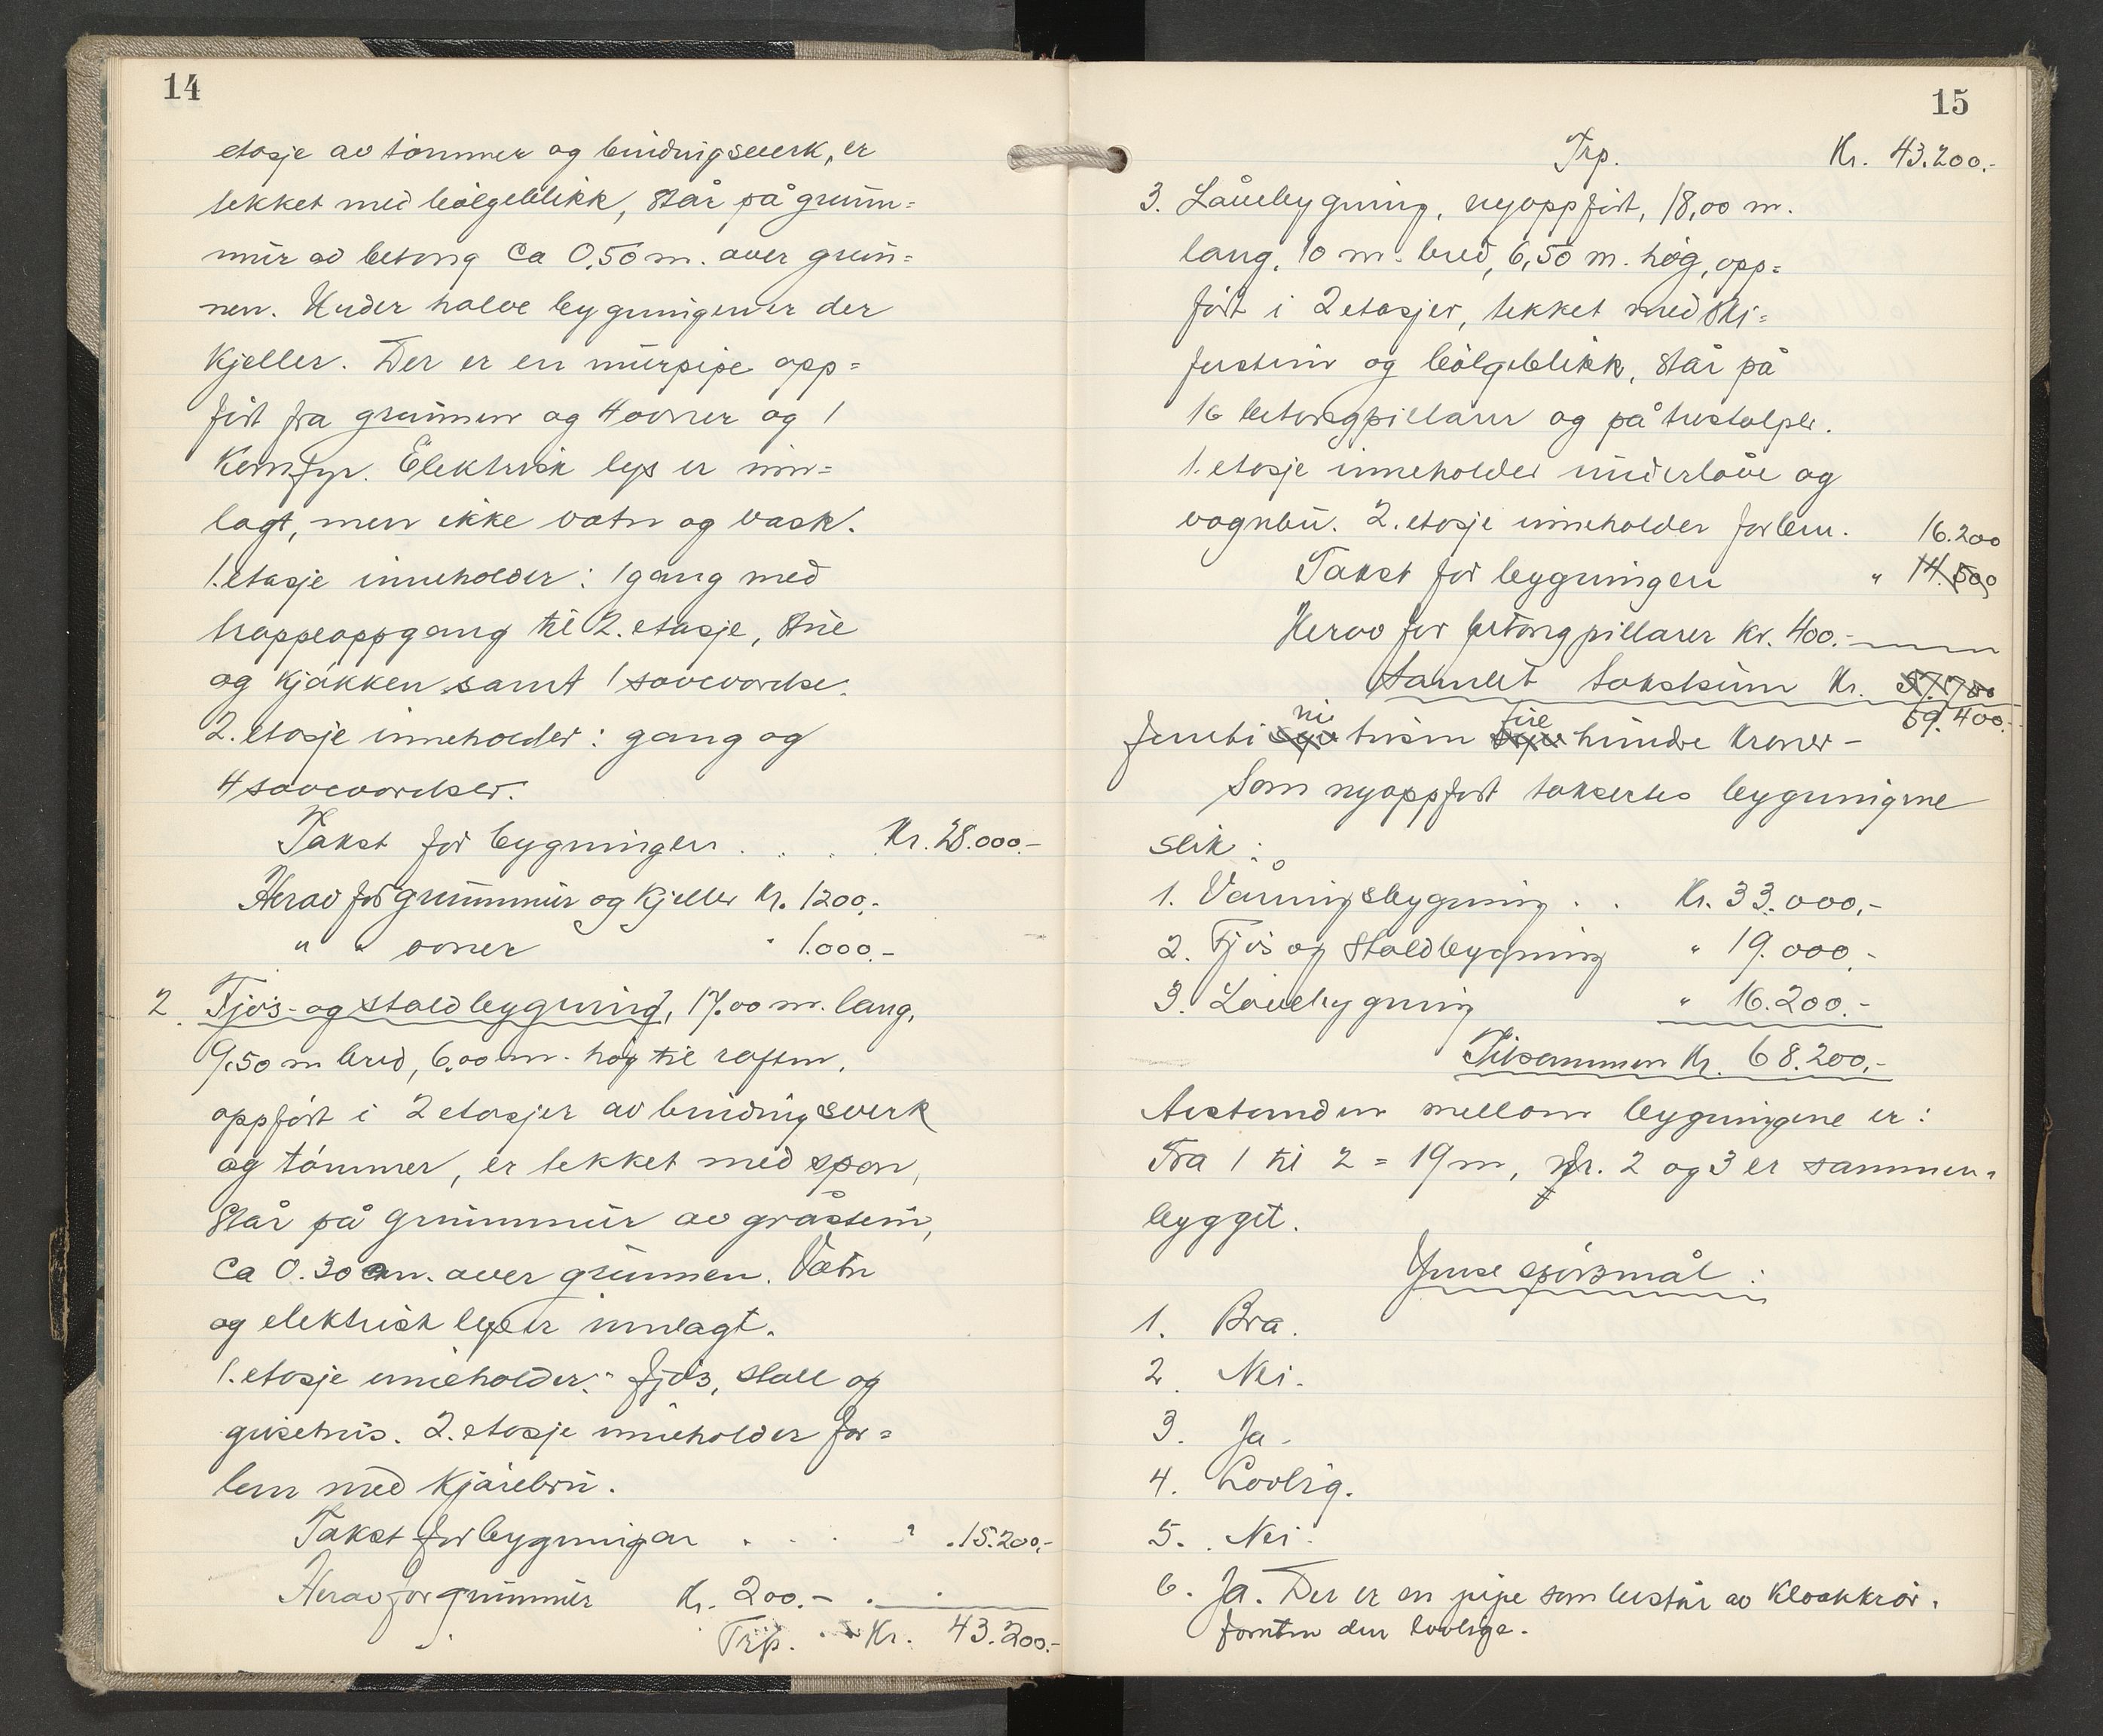 14
etasje av tömmer og bindingsverk, er
tekket med bölgeblikk, står på grunn=
mur av betong ca 0,50 m. over grun=
nen. Under halve bygningen er der
kjeller. Der er en murpipe opp=
fört fra grunnen og 4 ovner og 1
komfyr. Elektrisk lys er inn=
lagt, men ikke vatn og vask.
1. etasje inneholder: 1 gang med
trappeoppgang til 2. etasje, stue
og kjökken samt 1 soveværelse.
2. etasje inneholder: gang og
4 soveværelser.
Takst for bygningen . . . Kr. 28.000.-
Herav for grunnmur og kjeller Kr. 1200.-
" " ovner " 1.000.-
2. Fjös- og staldbygning, 17.00 m. lang,
9,50 m bred, 6,00 m. høg til raften,
oppfört i 2 etasjer av bindingsverk
og tömmer, er tekket med spon,
står på grunnmur av gråstein,
ca 0.30 m. over grunnen. Vatn
og elektrisk lys er innlagt.
1. etasje inneholder: fjös, stall og
grisehus. 2. etasje inneholder for=
lem med kjörebru.
Takst for bygningen . . . " . 15.200.-
Herav for grunnmur Kr. 200.- .
Trp. . Kr. 43.200.-
15
Trp. Kr. 43.200.-
3. Låvebygning, nyoppfört, 18,00 m.
lang, 10 m. bred, 6,50 m. høg, opp=
fört i 2 etasjer, tekket med ski=
ferstein og bölgeblikk, står på
16 betongpillarer og på trestolper.
1. etasje inneholder underlåve og
vognbu. 2. etasje inneholder forlem. 16.200
Takst for bygningen " 14.500
Herav for betongpillarer Kr. 400.-
Samlet takstsum Kr. 57.700
ni fire 59.400.-
femti syv tusen syv hundre kroner -
Som nyoppfört takseres bygningene
slik:
1. Våningsbygning . . Kr. 33.000.-
2. Fjös og staldbygning " 19.000.-
3. Låvebygning " 16.200.-
Tilsammen Kr. 68.200.-
Avstanden mellom bygningene er:
Fra 1 til 2 = 19 m, Nr. 2 og 3 er sammen=
bygget.
Ymse spörsmål:
1. Bra.
2. Nei.
3. Ja.
4. Lovlig.
5. Nei.
6. Ja. Der er en pipe som består av kloakkrör.
foruten den lovlige.